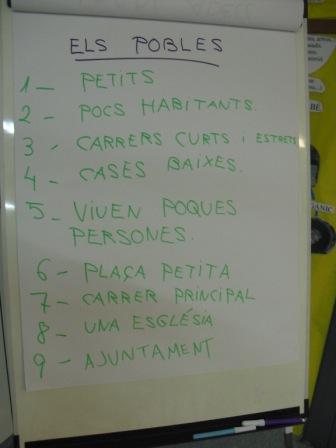 ELS POBLES
1 - PETITS
2 - POCS HABITANTS.
3 - CARRERS CURTS i ESTRETS
4 - CASES BAIXES.
5 - VIUEN POQUES
PERSONES.
6 - PLAÇA PETITA
7 - CARRER PRINCIPAL
8 - UNA ESGLÉSIA
9 - AJUNTAMENT